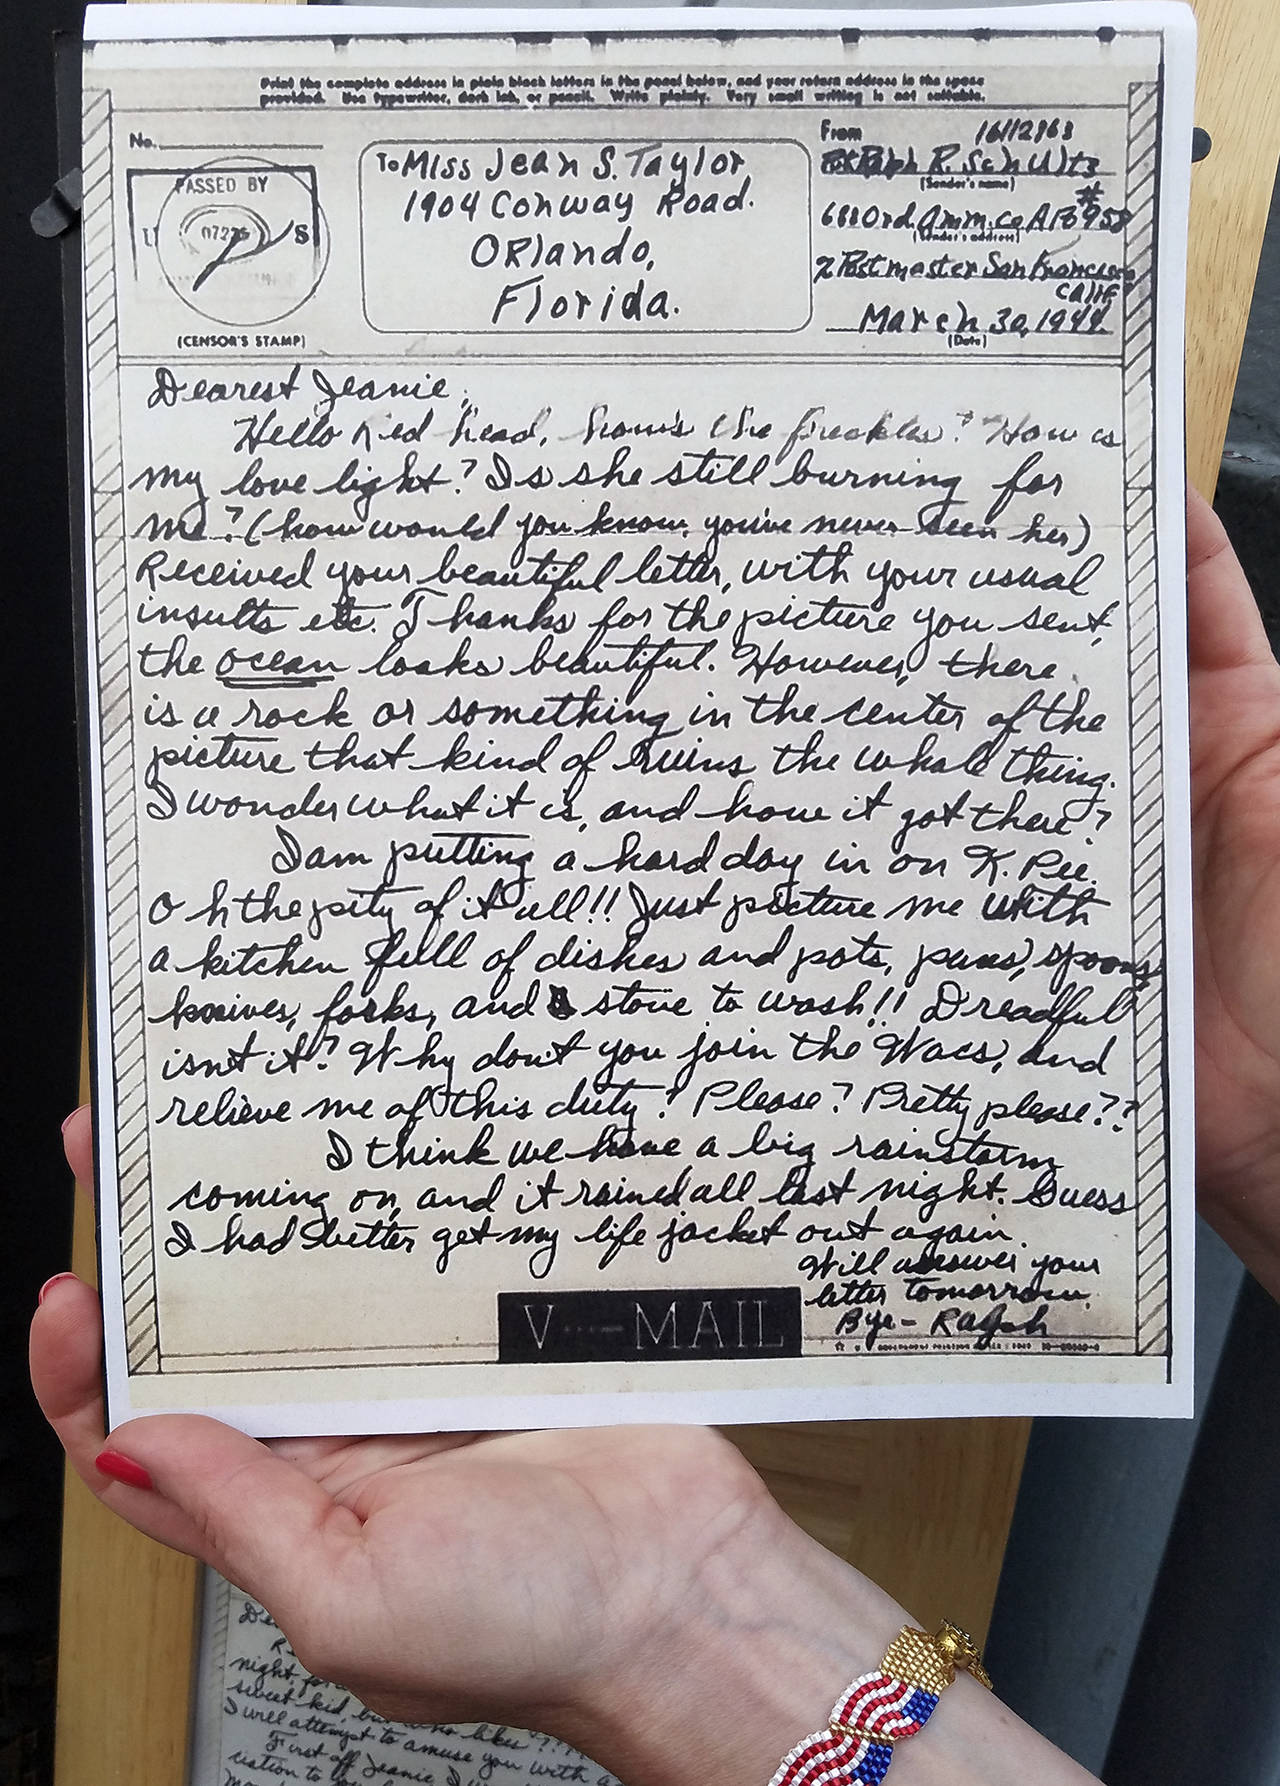 Print the complete address in plain black letters in the panel below, and your return address in the space
provided. Use typewriter, dark ink, or pencil. Write plainly. Very small writing is not suitable.
No.
PASSED BY
U S
(CENSOR'S STAMP)
To Miss Jean S. Taylor,
1904 Conway Road.
Orlando,
Florida.
From 16112868
Ralph R. Schultz
(Sender's name)
#
688 Ord. Amm. Co APO 958
(Sender's address)
% Postmaster San Francisco
Calif
March 30, 1944.
(Date)
Dearest Jeanie,
Hello Red head, how's the freckles? How is
my love light? Is she still burning for
me? (how would you know, you've never seen her)
Received your beautiful letter, with your usual
insults etc. Thanks for the picture you sent,
the ocean looks beautiful. However, there
is a rock or something in the center of the
picture that kind of ruins the whole thing.
I wonder what it is, and how it got there?
I am putting a hard day in on K. Pee.
Oh the pity of it all!! Just picture me with
a kitchen full of dishes and pots, pans, spoons,
knives, forks, and stove to wash!! Dreadful
isn't it? Why don't you join the Wacs, and
relieve me of this duty? Please? Pretty please??
I think we have a big rainstorm
coming on, and it rained all last night. Guess
I had better get my life jacket out again.
Will answer your
letter tomorrow.
Bye - Ralph
V ···— MAIL
night, for
sweet kid, but who likes ????
I will attempt to amuse you with a
First off Jeanie I